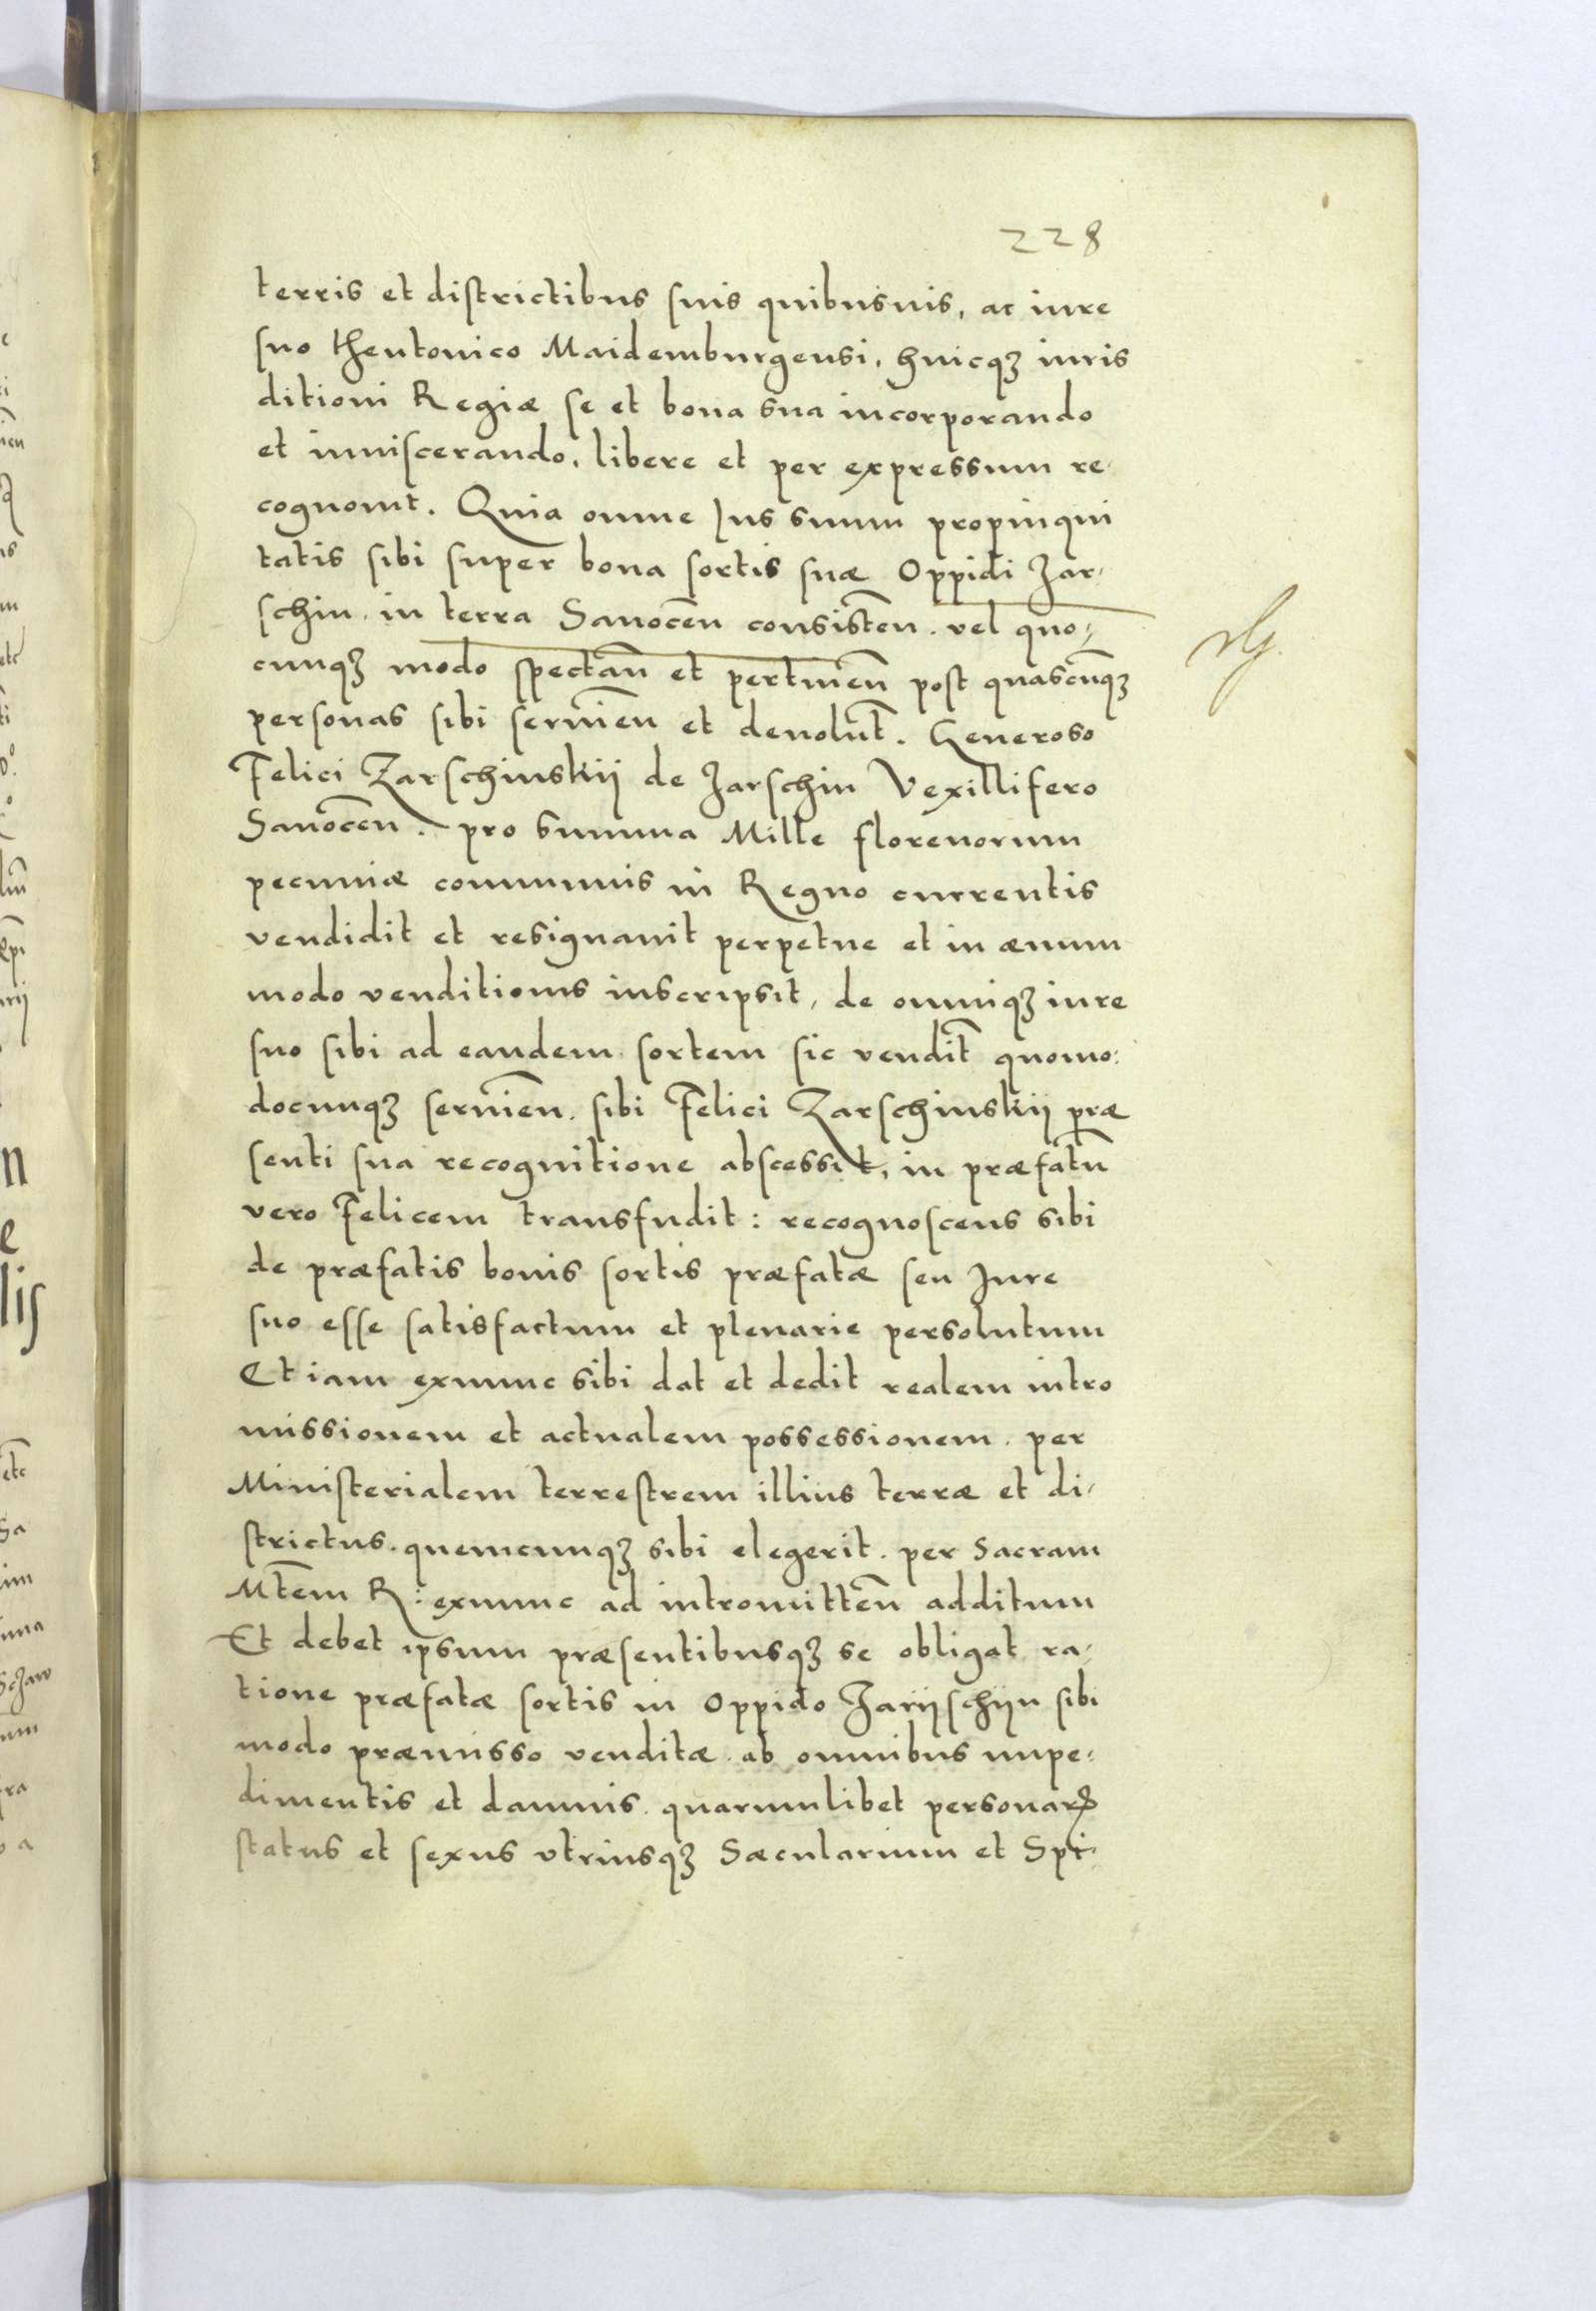 228
terris et districtibus suis quibusuis, ac iure
suo theutonico Maidemburgensi, huicqꝫ iuris
ditioni Regiæ se et bona sua incorporando
et inuiscerando, libere et per expressum re-
cognouit. Quia omne Ius suum propinqui
tatis sibi super bona sortis suæ Oppidi Zar-
schin. in terra Sanocen̄ consisten̄. vel quo-
cunqꝫ modo spectan̄ et pertinen̄ post quascūqꝫ
personas sibi seruien̄ et deuolut̄. Generoso
Felici Zarschinskij de Zarschin Vexillifero
Sanocen̄. pro summa Mille florenorum
pecuniæ communis in Regno currentis
vendidit et resignauit perpetue et in æuum
modo venditionis inscripsit, de omniqꝫ iure
suo sibi ad eandem sortem sic vendit̄ quomo-
documqꝫ seruien̄. sibi Felici Zarschinskij præ
senti sua recognitione abscessit, in præfatū
vero Felicem transfudit: recognoscens sibi
de præfatis bonis sortis præfatæ seu Iure
suo esse satisfactum et plenarie persolutum
Et iam exnunc sibi dat et dedit realem intro
missionem et actualem possessionem. per
Ministerialem terrestrem illius terræ et di-
strictus. quemcunqꝫ sibi elegerit. per Sacram
Mt̄em R: exnunc ad intromitten̄ additum
Et debet ipsum præsentibusqꝫ se obligat ra-
tione præfatæ sortis in Oppido Zarijschijn sibi
modo præmisso venditæ. ab omnibus impe-
dimentis et damnis. quarumlibet personarꝝ
status et sexus vtriusqꝫ Sæcularium et Spi-